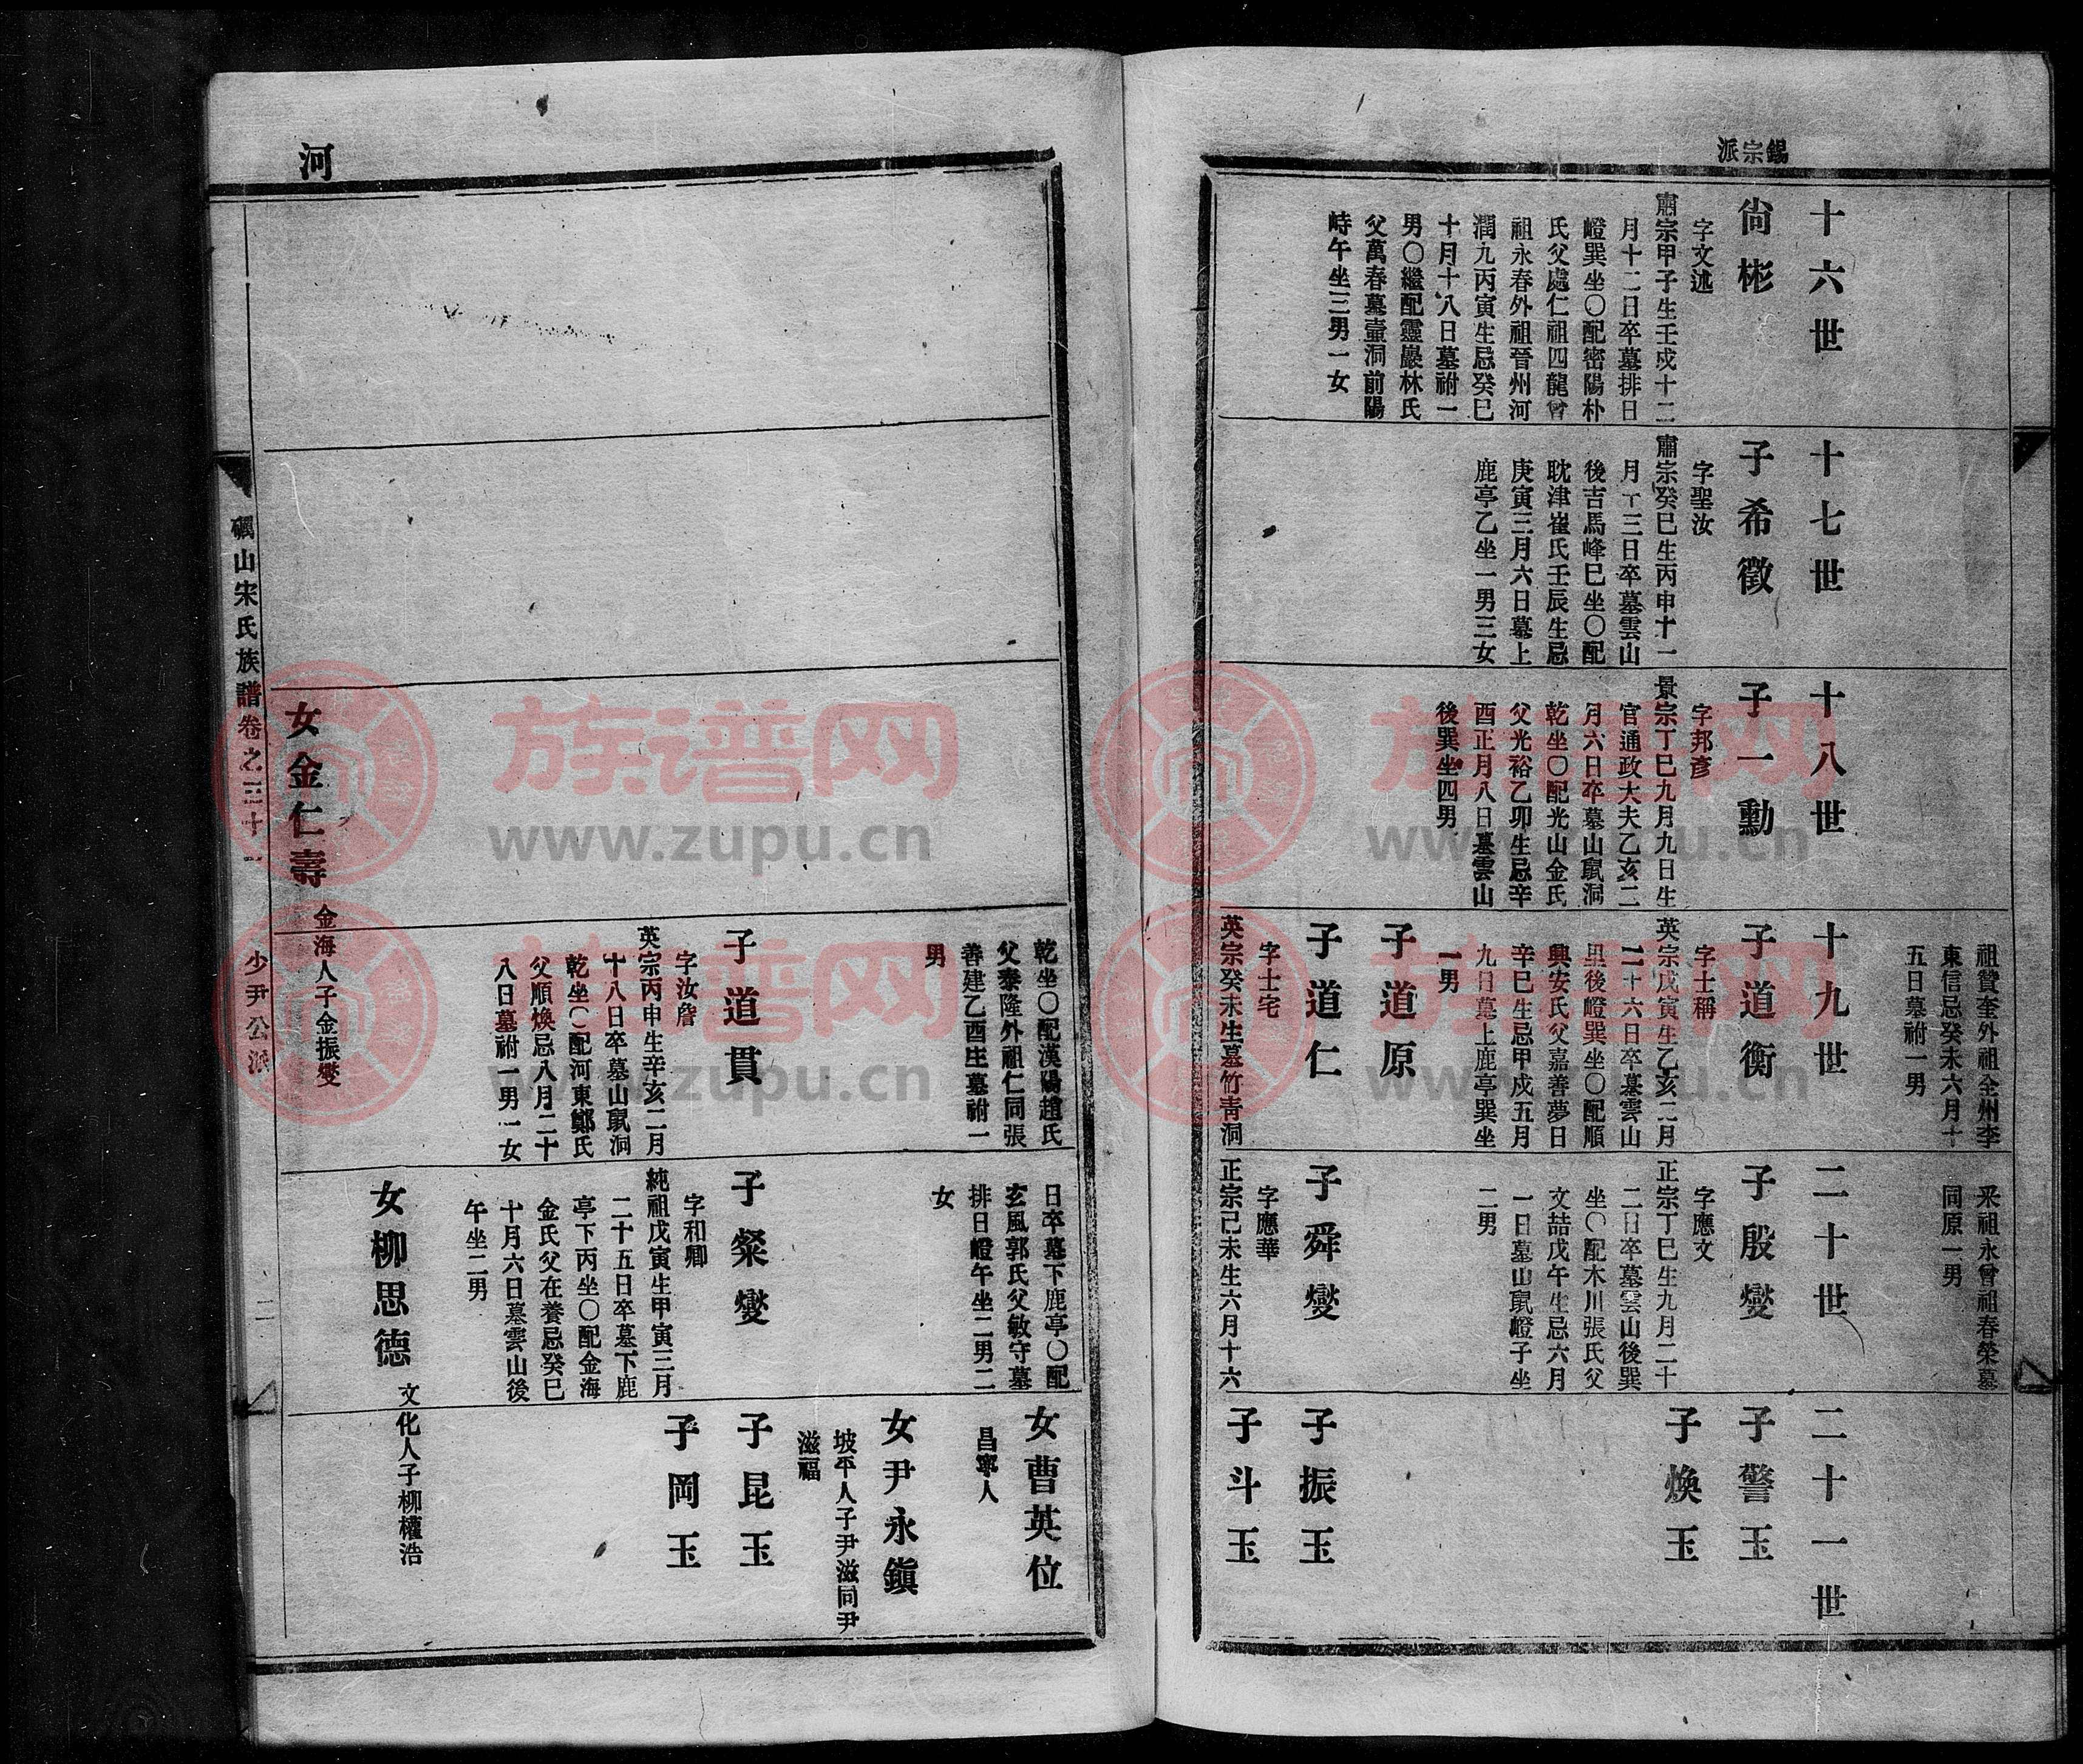 錫宗派
十六世
尙彬
字文述
肅宗甲子生壬戌十二
月十二日卒墓排日
嶝巽坐〇配密陽朴
氏父處仁祖四龍曾
祖永春外祖晉州河
潤九丙寅生忌癸巳
十月十八日墓祔一
男〇繼配靈巖林氏
父萬春墓壷洞前陽
峙午坐三男一女
十七世
子希徵
字聖汝
肅宗癸巳生丙申十一
月十三日卒墓雲山
後吉馬峰巳坐〇配
耽津崔氏壬辰生忌
庚寅三月六日墓上
鹿亭乙坐一男三女
十八世
子一勳
字邦彥
景宗丁巳九月九日生
官通政大夫乙亥二
月六日卒墓山鼠洞
乾坐〇配光山金氏
父光裕乙卯生忌辛
酉正月八日墓雲山
後巽坐四男
祖贊奎外祖全州李
東信忌癸未六月十
五日墓祔一男
十九世
子道衡
字士稱
英宗戊寅生乙亥二月
二十六日卒墓雲山
里後嶝巽坐〇配順
興安氏父嘉善夢日
辛巳生忌甲戌五月
九日墓上鹿亭巽坐
一男
子道原
子道仁
字士宅
英宗癸未生墓竹青洞
釆祖永曾祖春榮墓
同原一男
二十世
子殷燮
字應文
正宗丁巳生九月二十
二日卒墓雲山後巽
坐〇配木川張氏父
文喆戊午生忌六月
一日墓山鼠嶝子坐
二男
子舜燮
字應華
正宗己未生六月十六
二十一世
子警玉
子煥玉
子振玉
子斗玉
河
乾坐〇配漢陽趙氏
父泰隆外祖仁同張
善建乙酉生墓祔一
男
子道貫
字汝詹
英宗丙申生辛亥二月
十八日卒墓山鼠洞
乾坐〇配河東鄭氏
父順煥忌八月二十
八日墓祔一男一女
女金仁壽
金海人子金振燮
日卒墓下鹿亭〇配
玄風郭氏父敏守墓
排日嶝午坐二男二
女
子粲燮
字和卿
純祖戊寅生甲寅三月
二十五日卒墓下鹿
亭下丙坐〇配金海
金氏父在養忌癸巳
十月六日墓雲山後
午坐二男
女柳思德
文化人子柳權浩
女曹英位
昌寧人
女尹永鎭
坡平人子尹滋同尹
滋福
子昆玉
子岡玉
礪山宋氏族譜卷之三十一
少尹公派
二
族谱网
www.zupu.cn
族谱网
www.zupu.cn
族谱网
www.zupu.cn
族谱网
www.zupu.cn